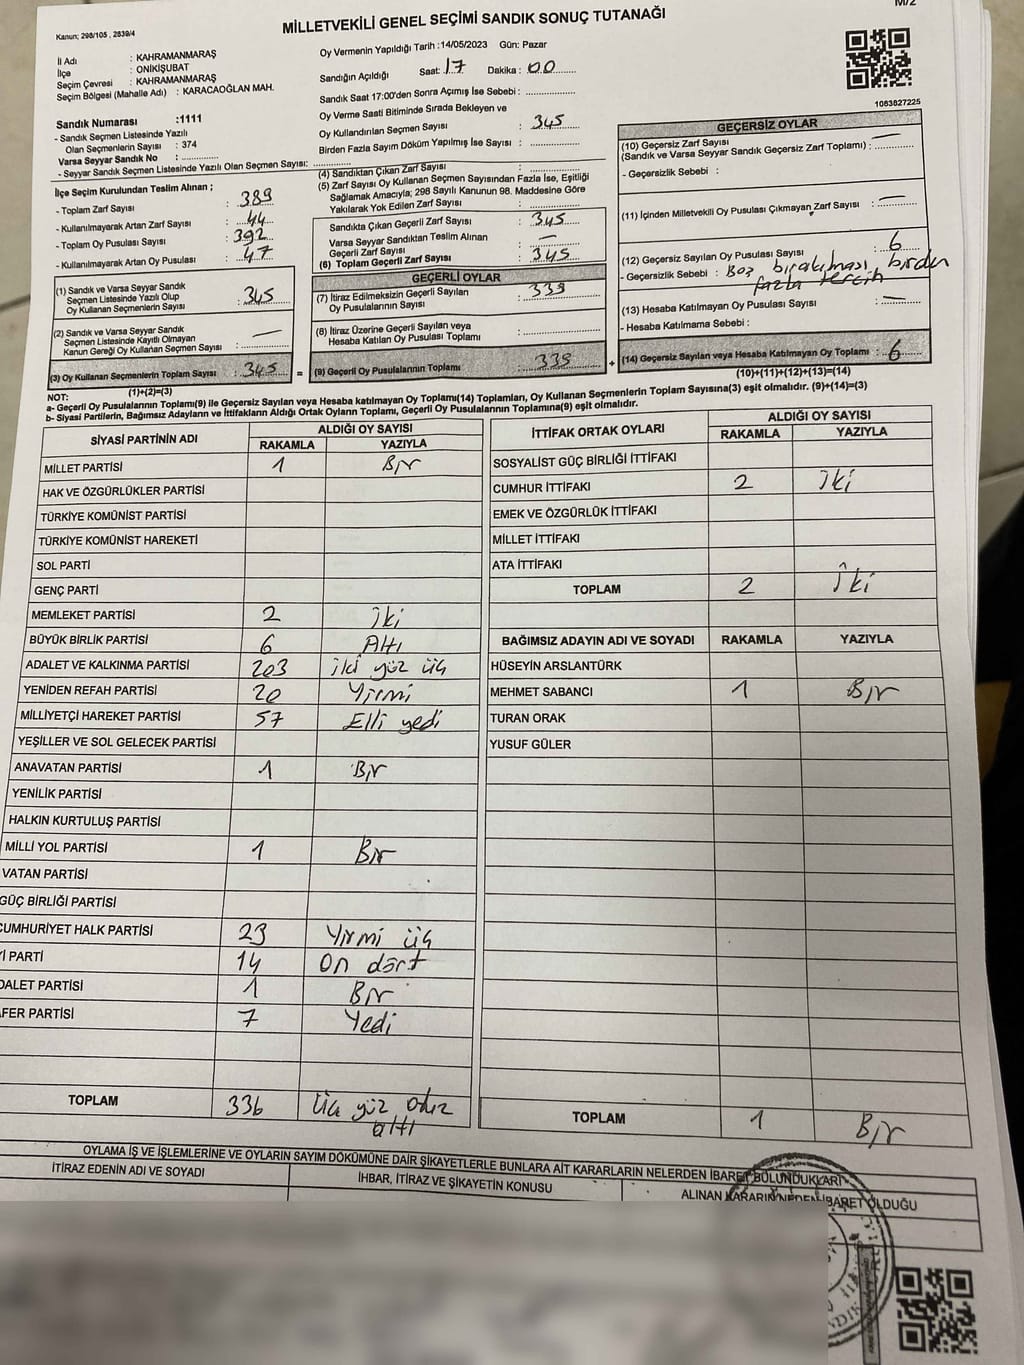 M/2
Kanun; 298/105 , 2839/4
MİLLETVEKİLİ GENEL SEÇİMİ SANDIK SONUÇ TUTANAĞI
İl Adı : KAHRAMANMARAŞ
İlçe : ONİKİŞUBAT
Seçim Çevresi : KAHRAMANMARAŞ
Seçim Bölgesi (Mahalle Adı) : KARACAOĞLAN MAH.
Sandık Numarası :1111
- Sandık Seçmen Listesinde Yazılı
Olan Seçmenlerin Sayısı : 374
Varsa Seyyar Sandık No :
- Seyyar Sandık Seçmen Listesinde Yazılı Olan Seçmen Sayısı:
Oy Vermenin Yapıldığı Tarih :14/05/2023 Gün: Pazar
Sandığın Açıldığı Saat: 17 Dakika : 00
Sandık Saat 17:00'den Sonra Açımış İse Sebebi :
Oy Verme Saati Bitiminde Sırada Bekleyen ve
Oy Kullandırılan Seçmen Sayısı : 345
Birden Fazla Sayım Döküm Yapılmış İse Sayısı :
1083827225
İlçe Seçim Kurulundan Teslim Alınan ;
- Toplam Zarf Sayısı : 389
- Kullanılmayarak Artan Zarf Sayısı : 44
- Toplam Oy Pusulası Sayısı : 392
- Kullanılmayarak Artan Oy Pusulası : 47
(1) Sandık ve Varsa Seyyar Sandık
Seçmen Listesinde Yazılı Olup
Oy Kullanan Seçmenlerin Sayısı : 345
(2) Sandık ve Varsa Seyyar Sandık
Seçmen Listesinde Kayıtlı Olmayan
Kanun Gereği Oy Kullanan Seçmen Sayısı : —
(3) Oy Kullanan Seçmenlerin Toplam Sayısı : 345 =
(1)+(2)=(3)
(4) Sandıktan Çıkan Zarf Sayısı
(5) Zarf Sayısı Oy Kullanan Seçmen Sayısından Fazla İse, Eşitliği
Sağlamak Amacıyla; 298 Sayılı Kanunun 98. Maddesine Göre
Yakılarak Yok Edilen Zarf Sayısı :
Sandıkta Çıkan Geçerli Zarf Sayısı : 345
Varsa Seyyar Sandıktan Teslim Alınan
Geçerli Zarf Sayısı : —
(6) Toplam Geçerli Zarf Sayısı : 345
GEÇERLİ OYLAR
(7) İtiraz Edilmeksizin Geçerli Sayılan
Oy Pusulalarının Sayısı : 339
(8) İtiraz Üzerine Geçerli Sayılan veya
Hesaba Katılan Oy Pusulası Toplamı :
(9) Geçerli Oy Pusulalarının Toplamı : 339 +
GEÇERSİZ OYLAR
(10) Geçersiz Zarf Sayısı
(Sandık ve Varsa Seyyar Sandık Geçersiz Zarf Toplamı) : —
- Geçersizlik Sebebi :
(11) İçinden Milletvekili Oy Pusulası Çıkmayan Zarf Sayısı : —
(12) Geçersiz Sayılan Oy Pusulası Sayısı : 6
- Geçersizlik Sebebi : Boş bırakılması, birden
fazla tercih
(13) Hesaba Katılmayan Oy Pusulası Sayısı : —
- Hesaba Katılmama Sebebi :
(14) Geçersiz Sayılan veya Hesaba Katılmayan Oy Toplamı : 6
(10)+(11)+(12)+(13)=(14)
NOT:
a- Geçerli Oy Pusulalarının Toplamı(9) ile Geçersiz Sayılan veya Hesaba katılmayan Oy Toplamı(14) Toplamları, Oy Kullanan Seçmenlerin Toplam Sayısına(3) eşit olmalıdır. (9)+(14)=(3)
b- Siyasi Partilerin, Bağımsız Adayların ve İttifakların Aldığı Ortak Oyların Toplamı, Geçerli Oy Pusulalarının Toplamına(9) eşit olmalıdır.
SİYASİ PARTİNİN ADI ALDIĞI OY SAYISI
RAKAMLA YAZIYLA
MİLLET PARTİSİ 1 Bir
HAK VE ÖZGÜRLÜKLER PARTİSİ
TÜRKİYE KOMÜNİST PARTİSİ
TÜRKİYE KOMÜNİST HAREKETİ
SOL PARTİ
GENÇ PARTİ
MEMLEKET PARTİSİ 2 iki
BÜYÜK BİRLİK PARTİSİ 6 Altı
ADALET VE KALKINMA PARTİSİ 203 iki yüz üç
YENİDEN REFAH PARTİSİ 20 Yirmi
MİLLİYETÇİ HAREKET PARTİSİ 57 Elli yedi
YEŞİLLER VE SOL GELECEK PARTİSİ
ANAVATAN PARTİSİ 1 Bir
YENİLİK PARTİSİ
HALKIN KURTULUŞ PARTİSİ
MİLLİ YOL PARTİSİ 1 Bir
VATAN PARTİSİ
GÜÇ BİRLİĞİ PARTİSİ
CUMHURİYET HALK PARTİSİ 23 Yirmi üç
Yİ PARTİ 14 On dört
DALET PARTİSİ 1 Bir
AFER PARTİSİ 7 Yedi
TOPLAM 336 Üç yüz otuz
altı
İTTİFAK ORTAK OYLARI ALDIĞI OY SAYISI
RAKAMLA YAZIYLA
SOSYALİST GÜÇ BİRLİĞİ İTTİFAKI
CUMHUR İTTİFAKI 2 İki
EMEK VE ÖZGÜRLÜK İTTİFAKI
MİLLET İTTİFAKI
ATA İTTİFAKI
TOPLAM 2 İki
BAĞIMSIZ ADAYIN ADI VE SOYADI RAKAMLA YAZIYLA
HÜSEYİN ARSLANTÜRK
MEHMET SABANCI 1 Bir
TURAN ORAK
YUSUF GÜLER
TOPLAM 1 Bir
OYLAMA İŞ VE İŞLEMLERİNE VE OYLARIN SAYIM DÖKÜMÜNE DAİR ŞİKAYETLERLE BUNLARA AİT KARARLARIN NELERDEN İBARET BULUNDUKLARI
İTİRAZ EDENİN ADI VE SOYADI İHBAR, İTİRAZ VE ŞİKAYETİN KONUSU ALINAN KARARIN NEDEN İBARET OLDUĞU